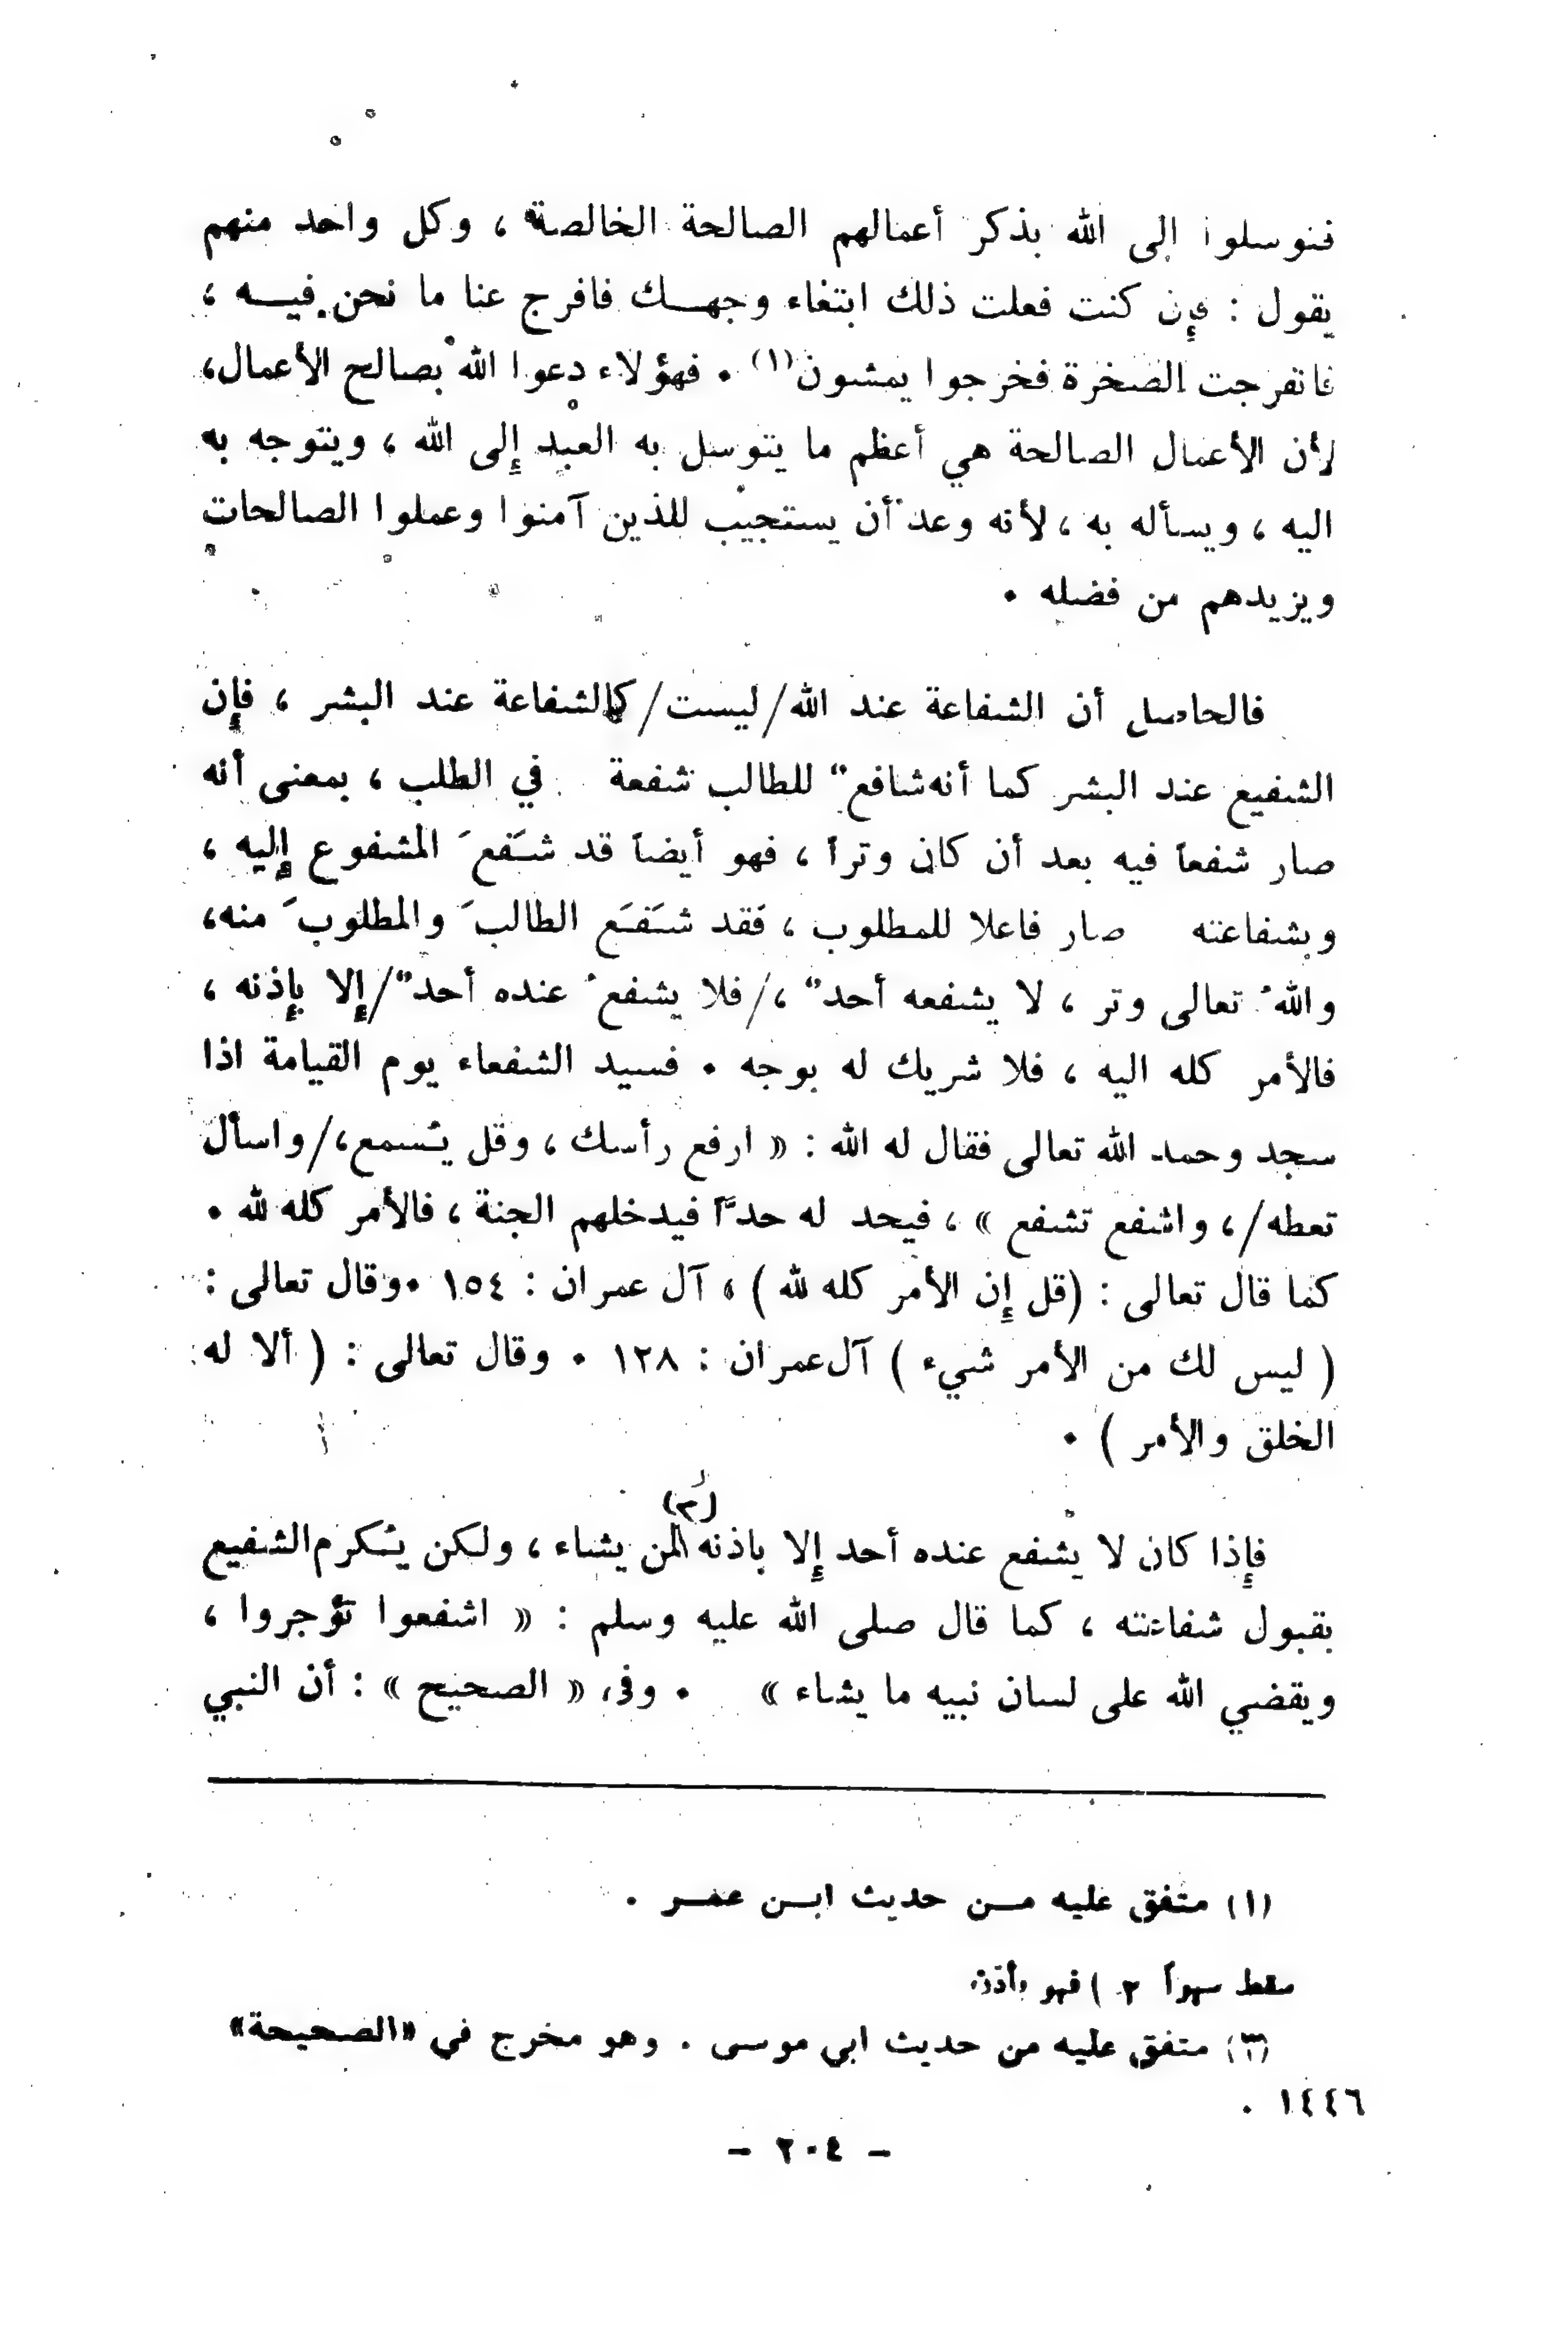 فتوسلوا إلى الله بذكر أعمالهم الصالحة الخالصة ، وكل واحد منهم
يقول : فإن كنت فعلت ذلك ابتغاء وجهـــك فافرج عنا ما نحن فيـــه ،
فانفرجت الصخرة فخرجوا يمشون(١) . فهؤلاء دعوا الله بصالح الأعمال،
لأن الأعمال الصالحة هي أعظم ما يتوسل به العبد إلى الله ، ويتوجه به
اليه ، ويسأله به ، لأنه وعد أن يستجيب للذين آمنوا وعملوا الصالحات
ويزيدهم من فضله .
فالحاصل أن الشفاعة عند الله/ليست/كالشفاعة عند البشر ، فإن
الشفيع عند البشر كما أنه شافعٌ للطالب شفعة في الطلب ، بمعنى أنه
صار شفعاً فيه بعد أن كان وتراً ، فهو أيضاً قد شَفعَ المشفوع إليه ،
وبشفاعته صار فاعلا للمطلوب ، فقد شَفَع الطالبَ والمطلوبَ منه،
واللهُ تعالى وتر ، لا يشفعه أحدٌ ،/فلا يشفعُ عنده أحدٌ/إلا بإذنه ،
فالأمر كله اليه ، فلا شريك له بوجه . فسيد الشفعاء يوم القيامة اذا
سجد وحمد الله تعالى فقال له الله : « ارفع رأسك ، وقل يُسمع،/واسأل
تعطه/، واشفع تشفع » ، فيحد له حدّاً فيدخلهم الجنة ، فالأمر كله لله .
كما قال تعالى : (قل إن الأمر كله لله ) ، آل عمران : ١٥٤ .وقال تعالى :
( ليس لك من الأمر شيء ) آل عمران : ١٢٨ . وقال تعالى : ( ألا له
الخلق والأمر ) .
فإذا كان لا يشفع عنده أحد إلا باذنه (٢) لمن يشاء ، ولكن يُكرم الشفيع
بقبول شفاعته ، كما قال صلى الله عليه وسلم : « اشفعوا تؤجروا ،
ويقضي الله على لسان نبيه ما يشاء » . وفي « الصحيح » : أن النبي
(١) متفق عليه مــن حديث ابــن عمــر .
سقط سهواً ٢ ) فهو يأذن
(٣) متفق عليه من حديث ابي موسى . وهو مخرج في «الصحيحة»
١٤٤٦ .
– ٢٠٤ –